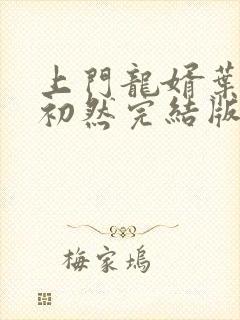 上門龍婿葉
初然完結版
梅家塢